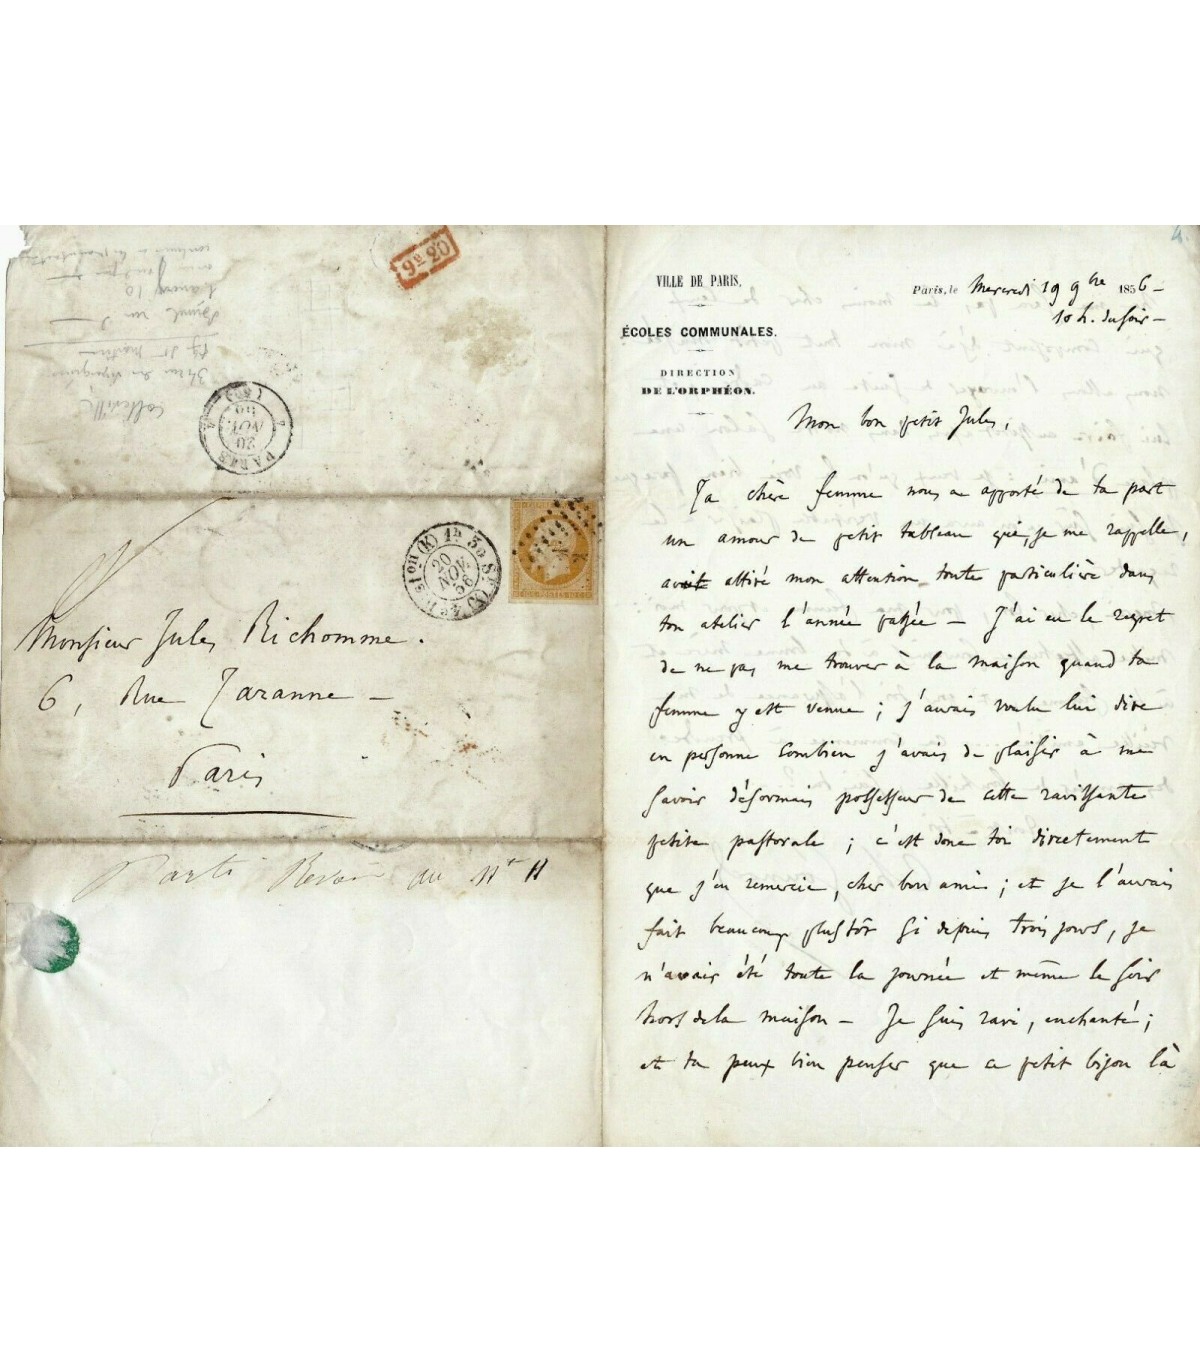 9º 20
PARIS
20
NOV.
56
4e Dist on (K) 1h 30 S.
20
NOV.
56
Monsieur Jules Richomme.
6, Rue Taranne –
Paris
Parti au
4.
VILLE DE PARIS.
ÉCOLES COMMUNALES.
DIRECTION
DE L'ORPHÉON.
Paris, le Mercredi 19 9bre 1856 –
10 h. du soir –
Mon bon petit Jules,
Ta chère femme nous a apporté de ta part
un amour de petit tableau qui, je me rappelle,
avait attiré mon attention toute particulière dans
ton atelier l'année passée – J'ai eu le regret
de ne pas me trouver à la maison quand ta
femme y est venue ; j'aurais voulu lui dire
en personne combien j'avais de plaisir à me
savoir désormais possesseur de cette ravissante
petite pastorale ; c'est donc toi directement
que j'en remercie, cher bon ami ; et je l'aurais
fait beaucoup plustôt si depuis trois jours, je
n'avais été toute la journée et même le soir
hors de la maison – Je suis ravi, enchanté ;
et tu peux bien penser que ce petit bijou là